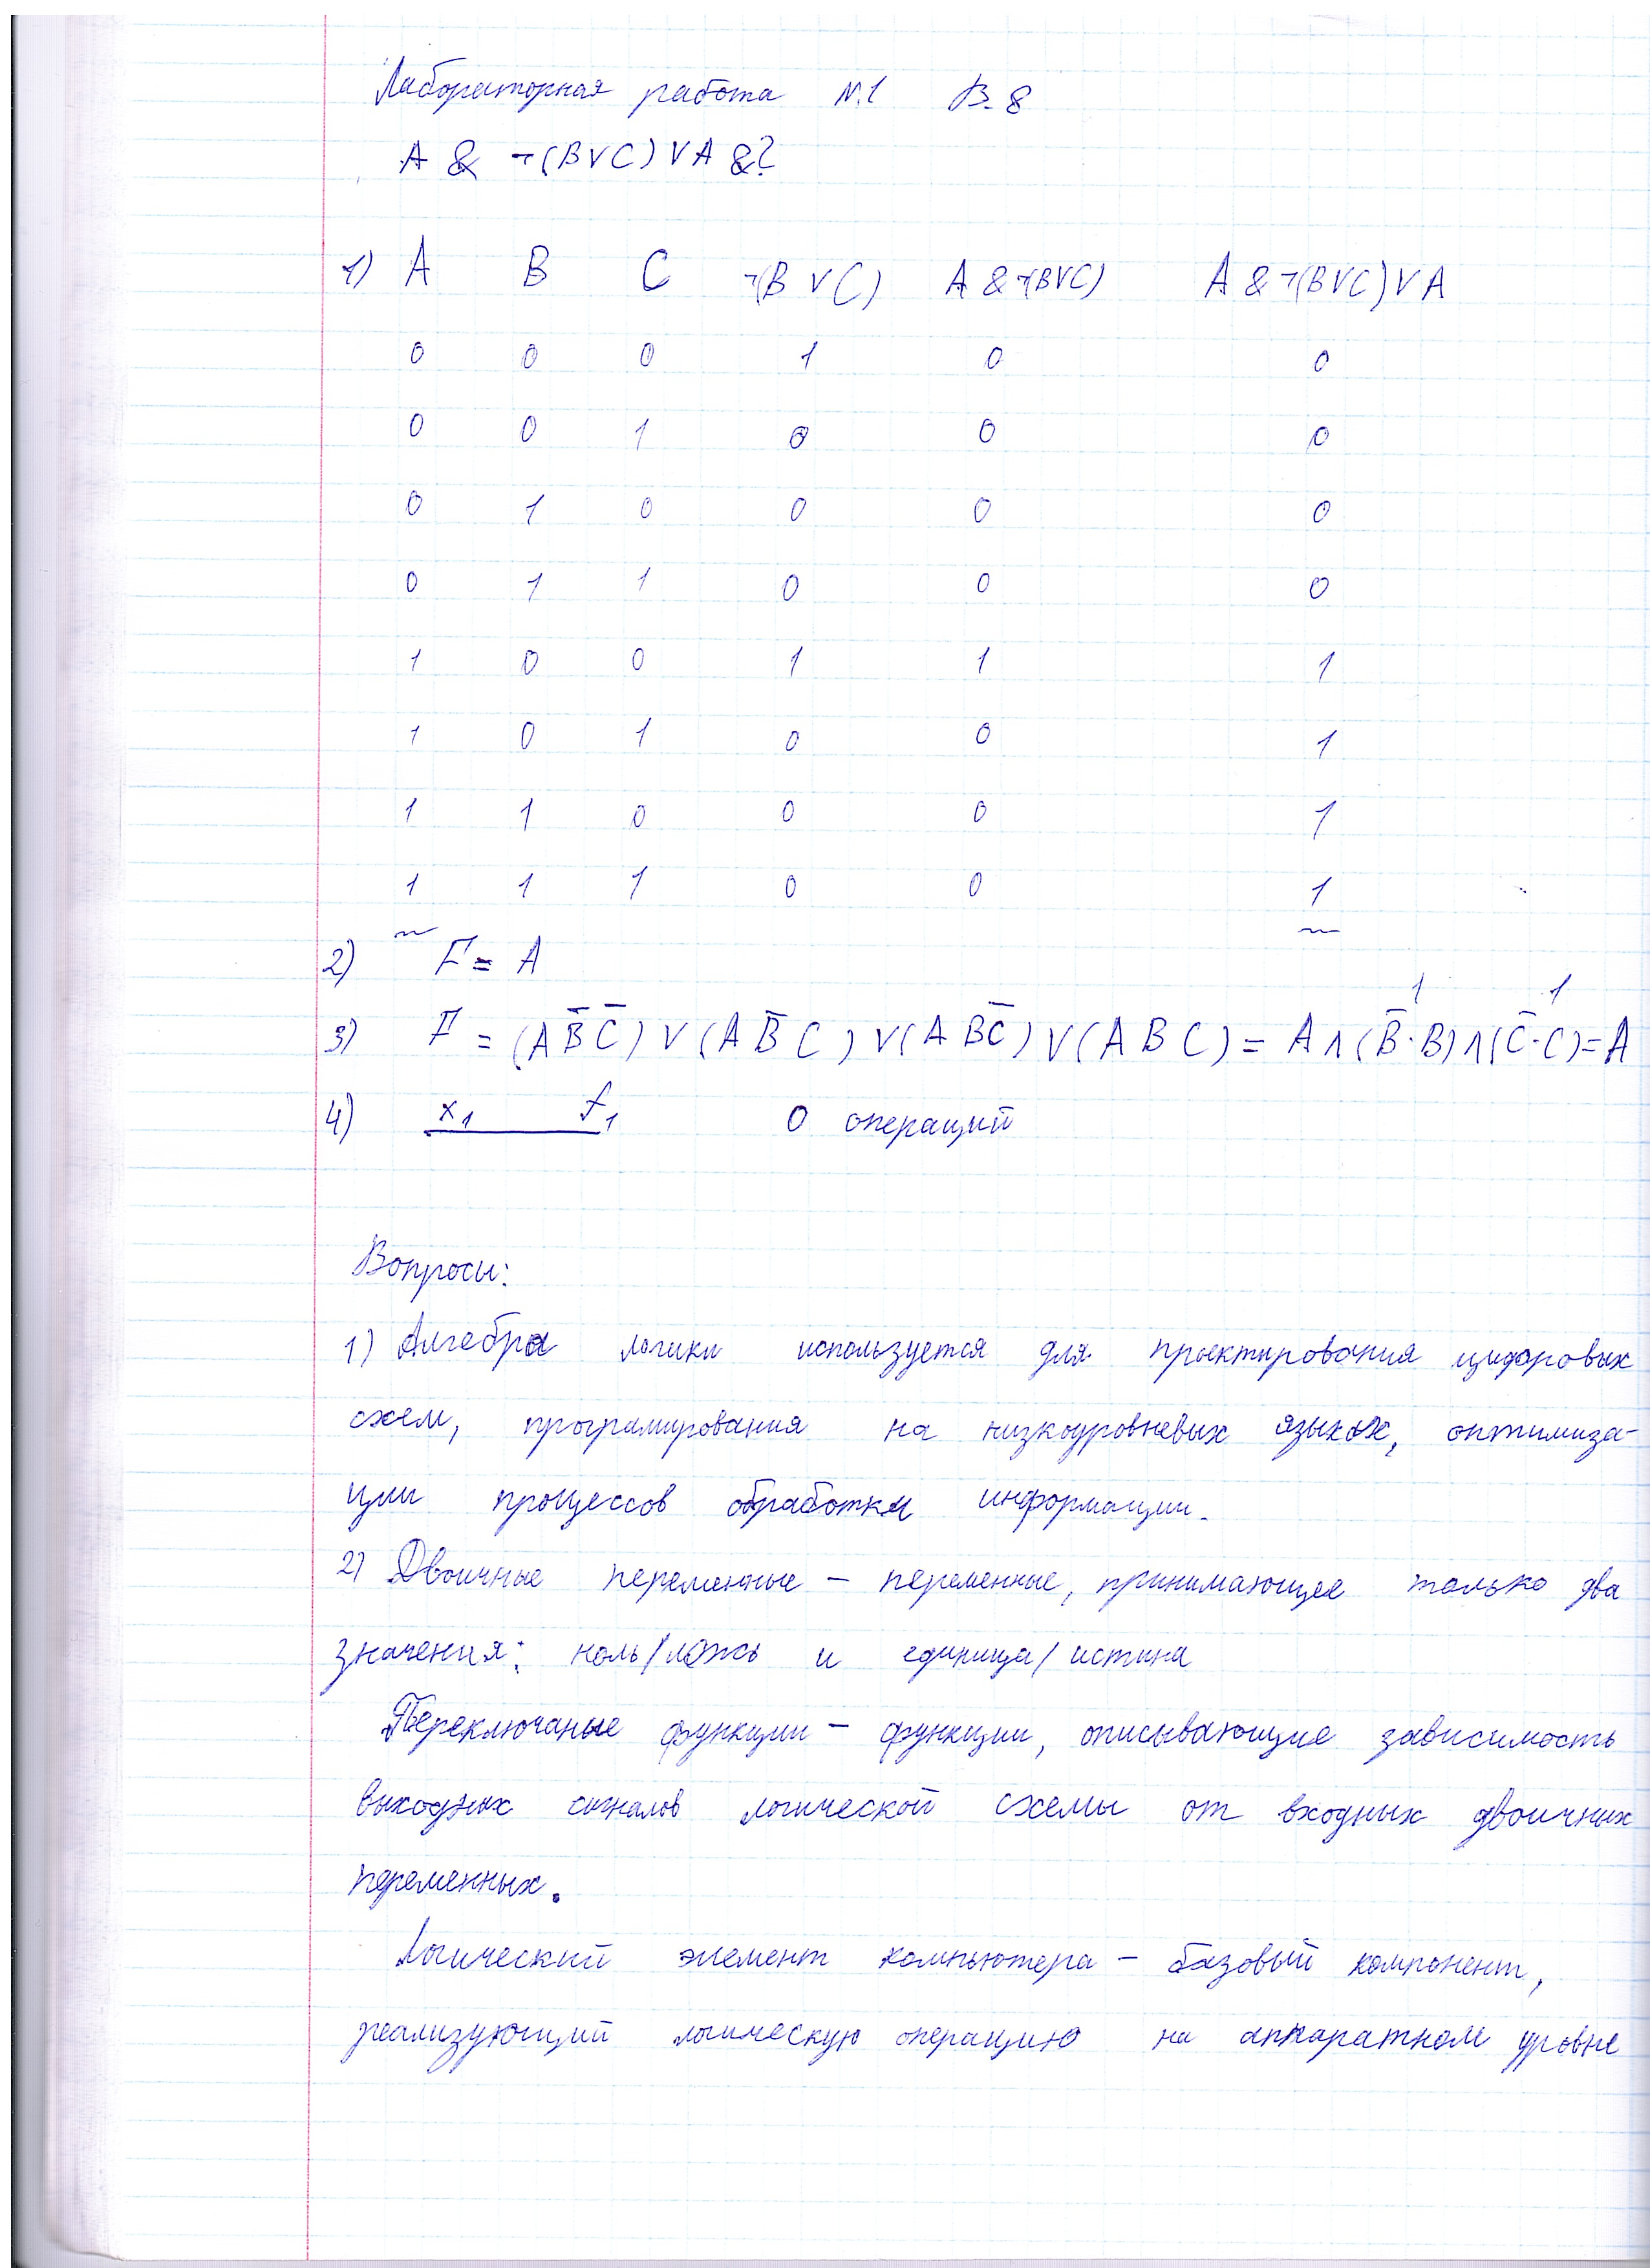 Лабораторная работа №1 В-8
A & ¬(B∨C)∨A &?
1) A B C ¬(B∨C) A&¬(B∨C) A&¬(B∨C)∨A
0 0 0 1 0 0
0 0 1 0 0 0
0 1 0 0 0 0
0 1 1 0 0 0
1 0 0 1 1 1
1 0 1 0 0 1
1 1 0 0 0 1
1 1 1 0 0 1
2) F = A
3) F = (A B̅ C̅) ∨ (A B̅ C) ∨ (A B C̅) ∨ (A B C) = A ∧ (B̅·B) ∧ (C̅·C) = A
1 1
4) x₁ f₁ 0 операций
Вопросы:
1) Алгебра логики используется для проектирования цифровых
схем, програмирования на низкоуровневых языках, оптимиза-
ции процессов обработки информации.
2) Двоичные переменные – переменные, принимающее только два
значения: ноль/ложь и единица/истина
Переключаные функции – функции, описывающие зависимость
выходных сигналов логической схемы от входных двоичных
переменных.
Логический элемент компьютера – базовый компонент,
реализующий логическую операцию на аппаратном уровне